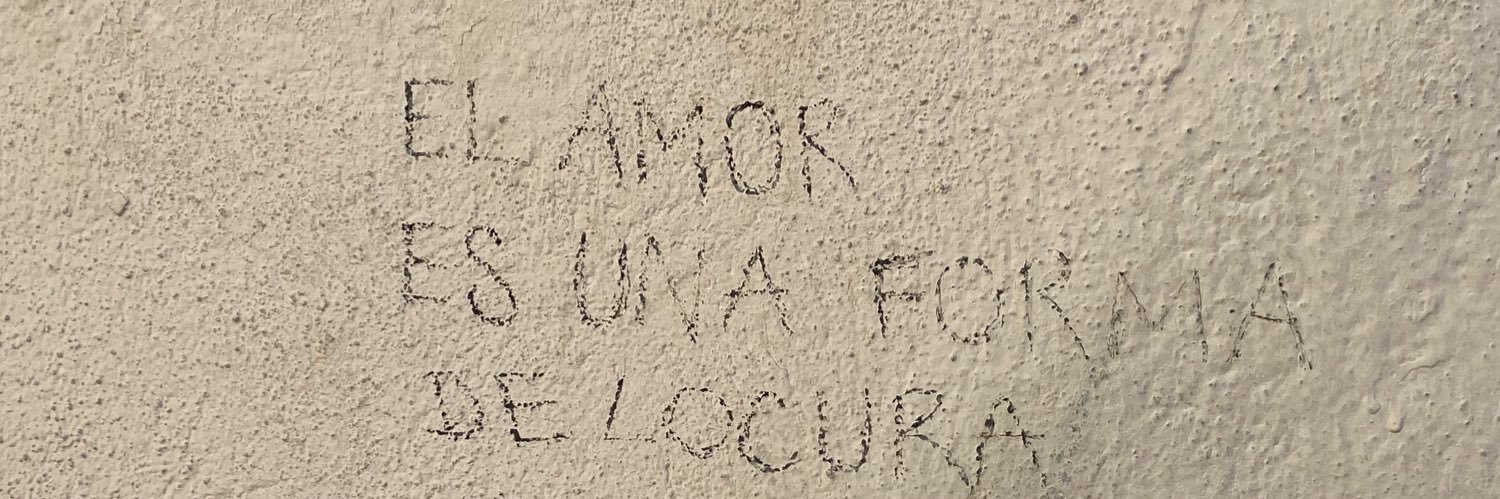 EL AMOR
ES UNA FORMA
DE LOCURA